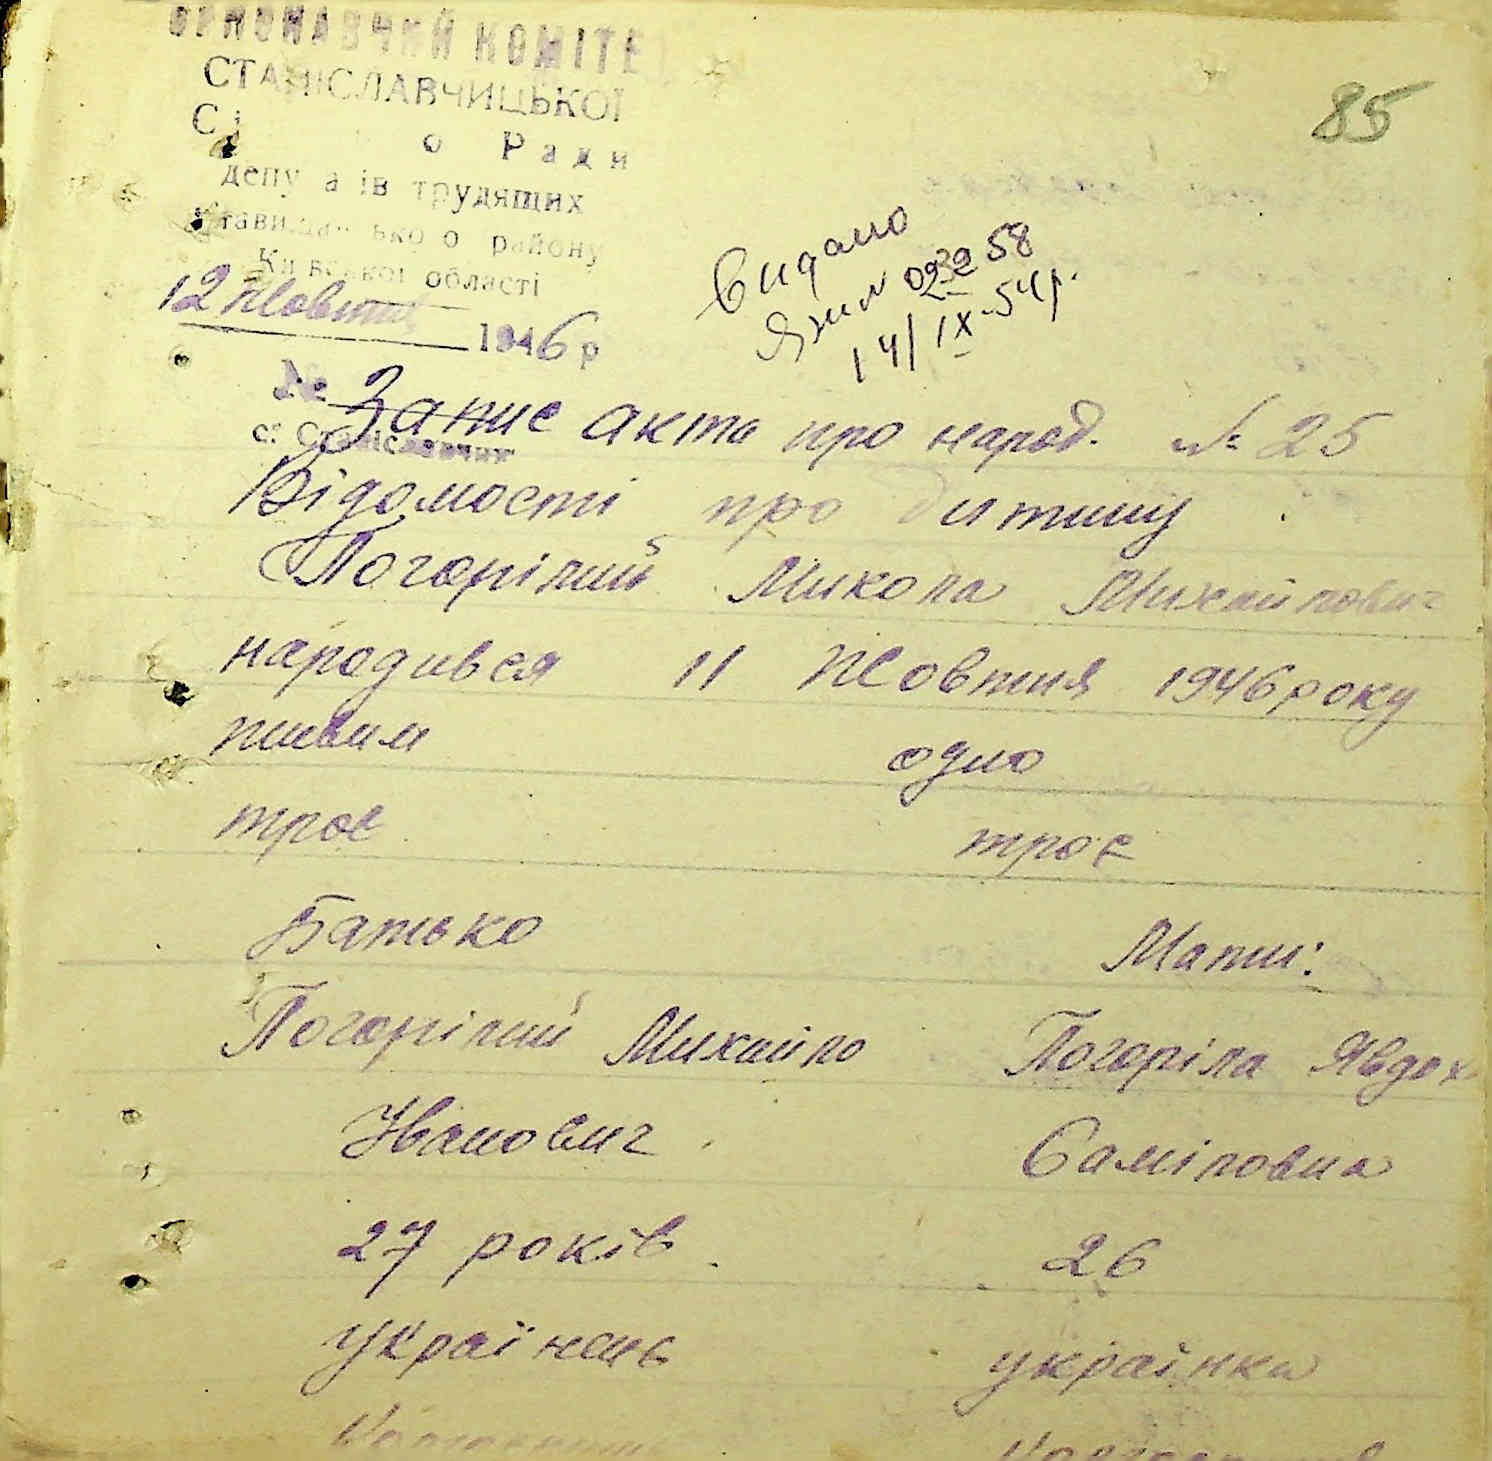 85
ВИКОНАВЧИЙ КОМІТЕ
СТАНІСЛАВЧИЦЬКОЇ
о Ради
депу а ів трудящих
районy
Київської області
12 жовтня 1946 р
№
с. Станіславчик
Видано
ЯЮ № 023258
14/IX-54р.
Запис акта про народ. № 25
Відомості про дитину
Погорілий Микола Михайлович
народився 11 Жовтня 1946 року
живим одно
троє троє
Батько Мати:
Погорілий Михайло Погоріла Явдох
Іванович Саміловна
27 років 26
українець українка